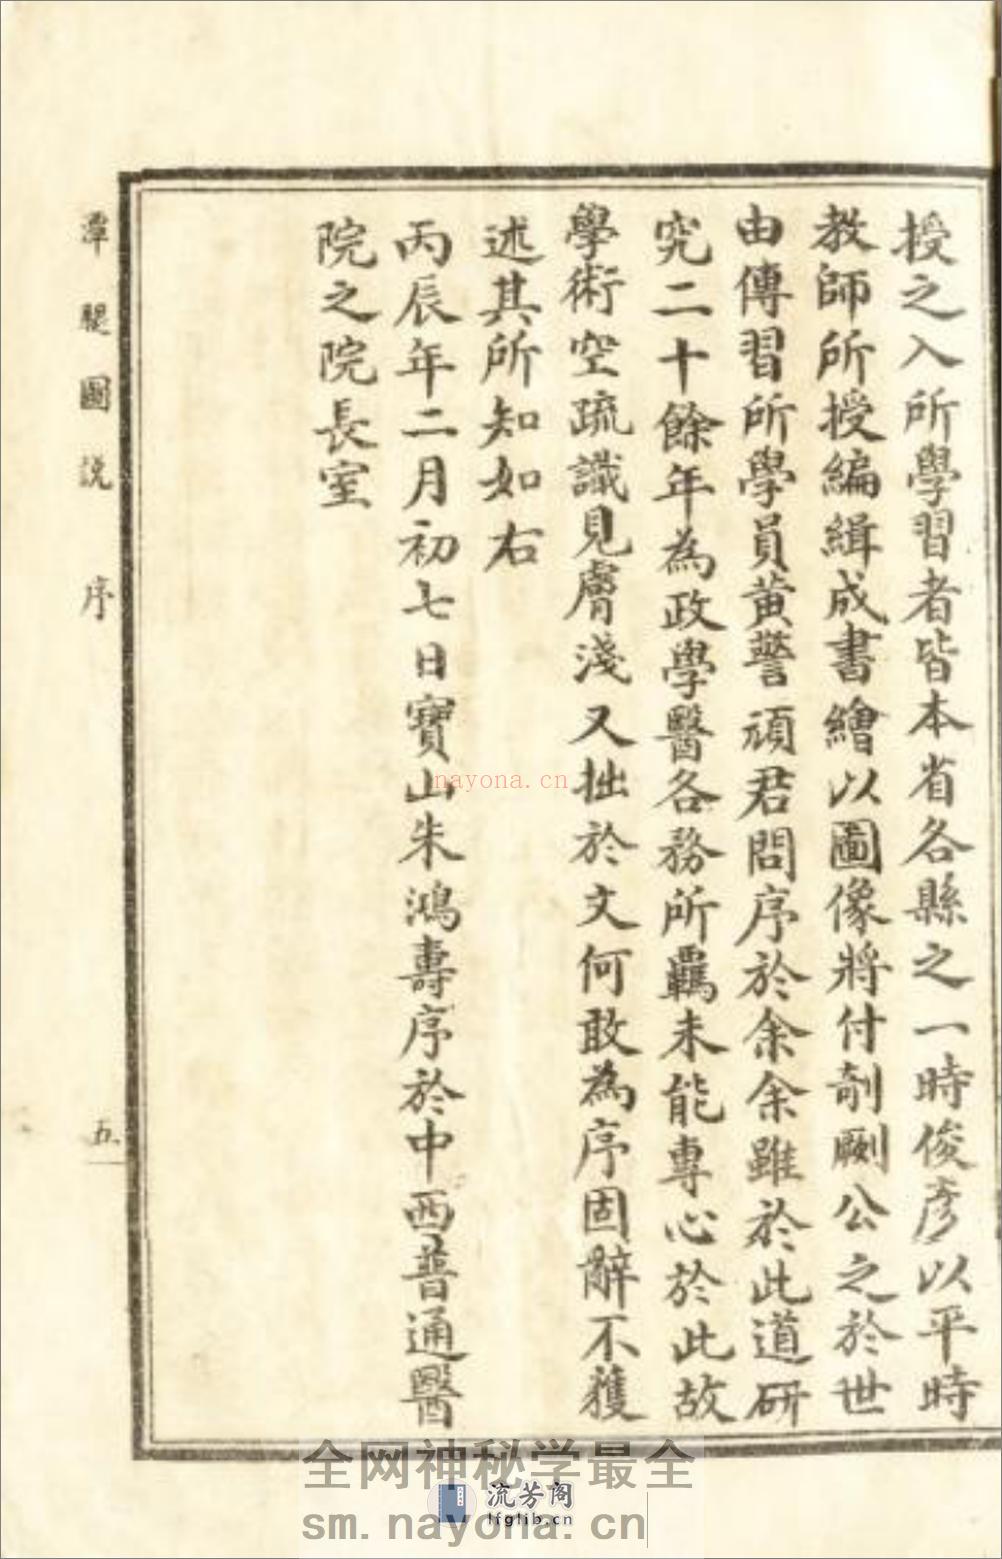 授之入所學習者皆本省各縣之一時俊彥以平時
教師所授編緝成書繪以圖像將付剞劂公之於世
由傳習所學員黄警頑君問序於余余雖於此道研
究二十餘年為政學醫各務所羈未能專心於此故
學術空疏識見膚淺又拙於文何敢為序固辭不獲
述其所知如右
丙辰年二月初七日寶山朱鴻壽序於中西普通醫
院之院長室
潭腿圖説 序
五
nayona.cn
全网神秘学最全
流芳阁
lfglib.cn
sm.nayona.cn